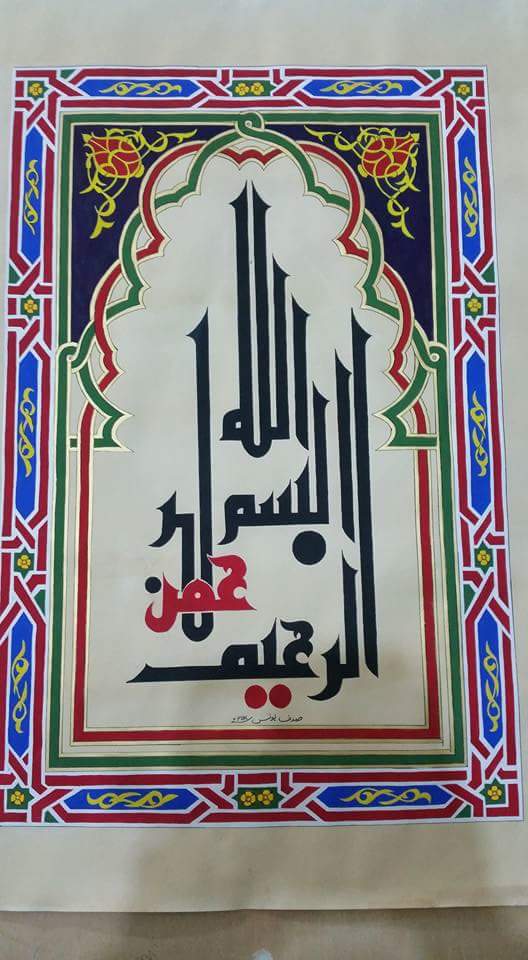 بسم الله
الرحمن
الرحيم
صدف یونس